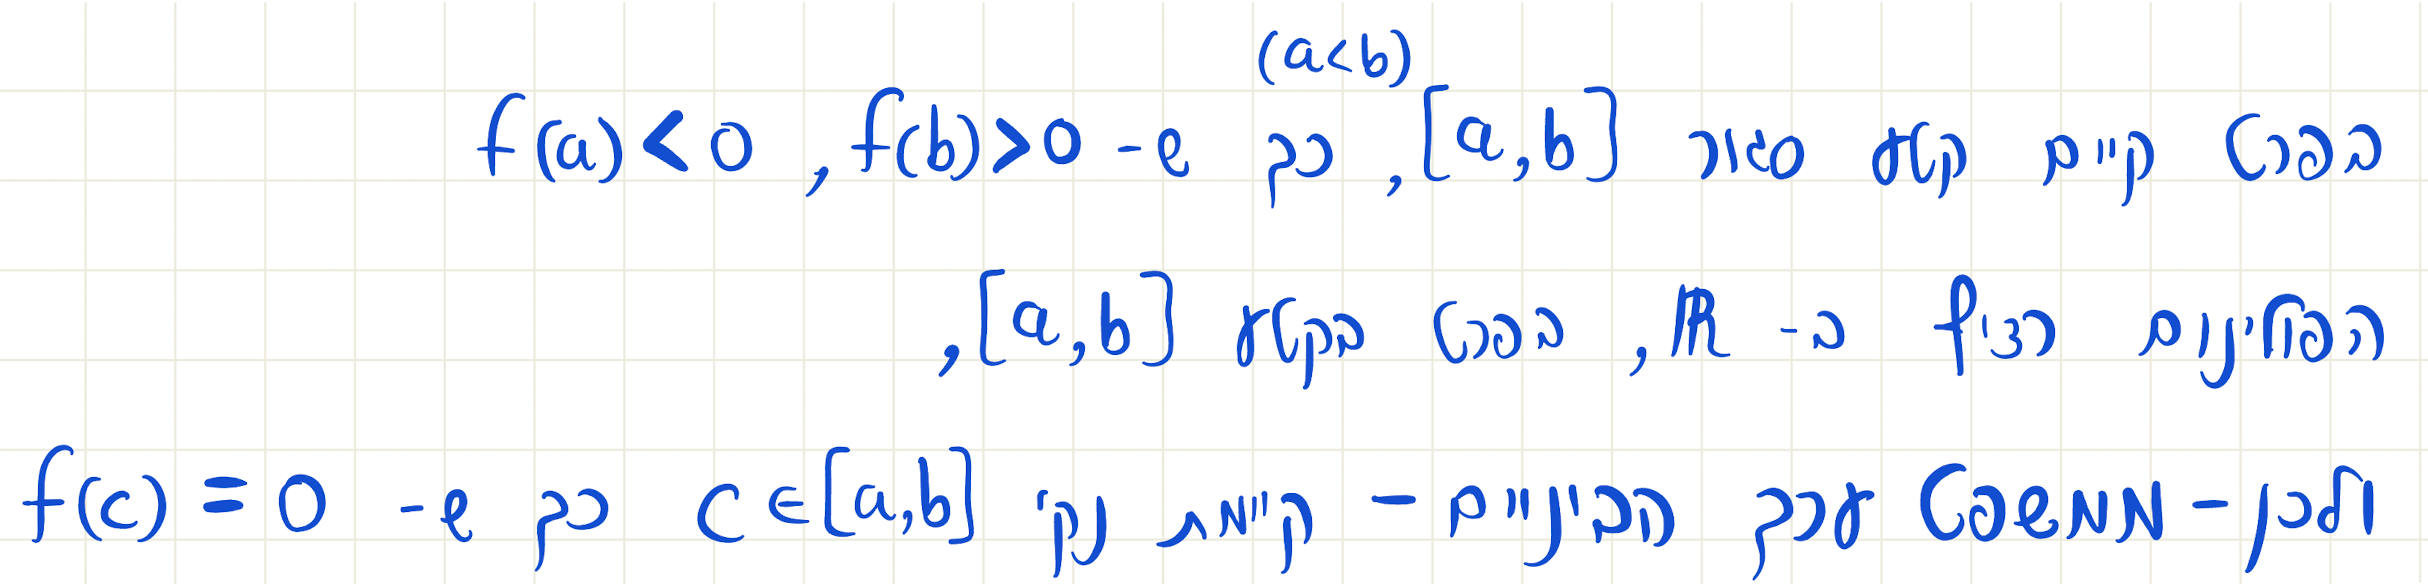 (a<b)
בפרט קיים קטע סגור [a,b], כך ש- f(a)<0, f(b)>0
הפולינום רציף ב- ℝ, בפרט בקטע [a,b],
ולכן - ממשפט ערך הביניים - קיימת נק' c∈[a,b] כך ש- f(c)=0